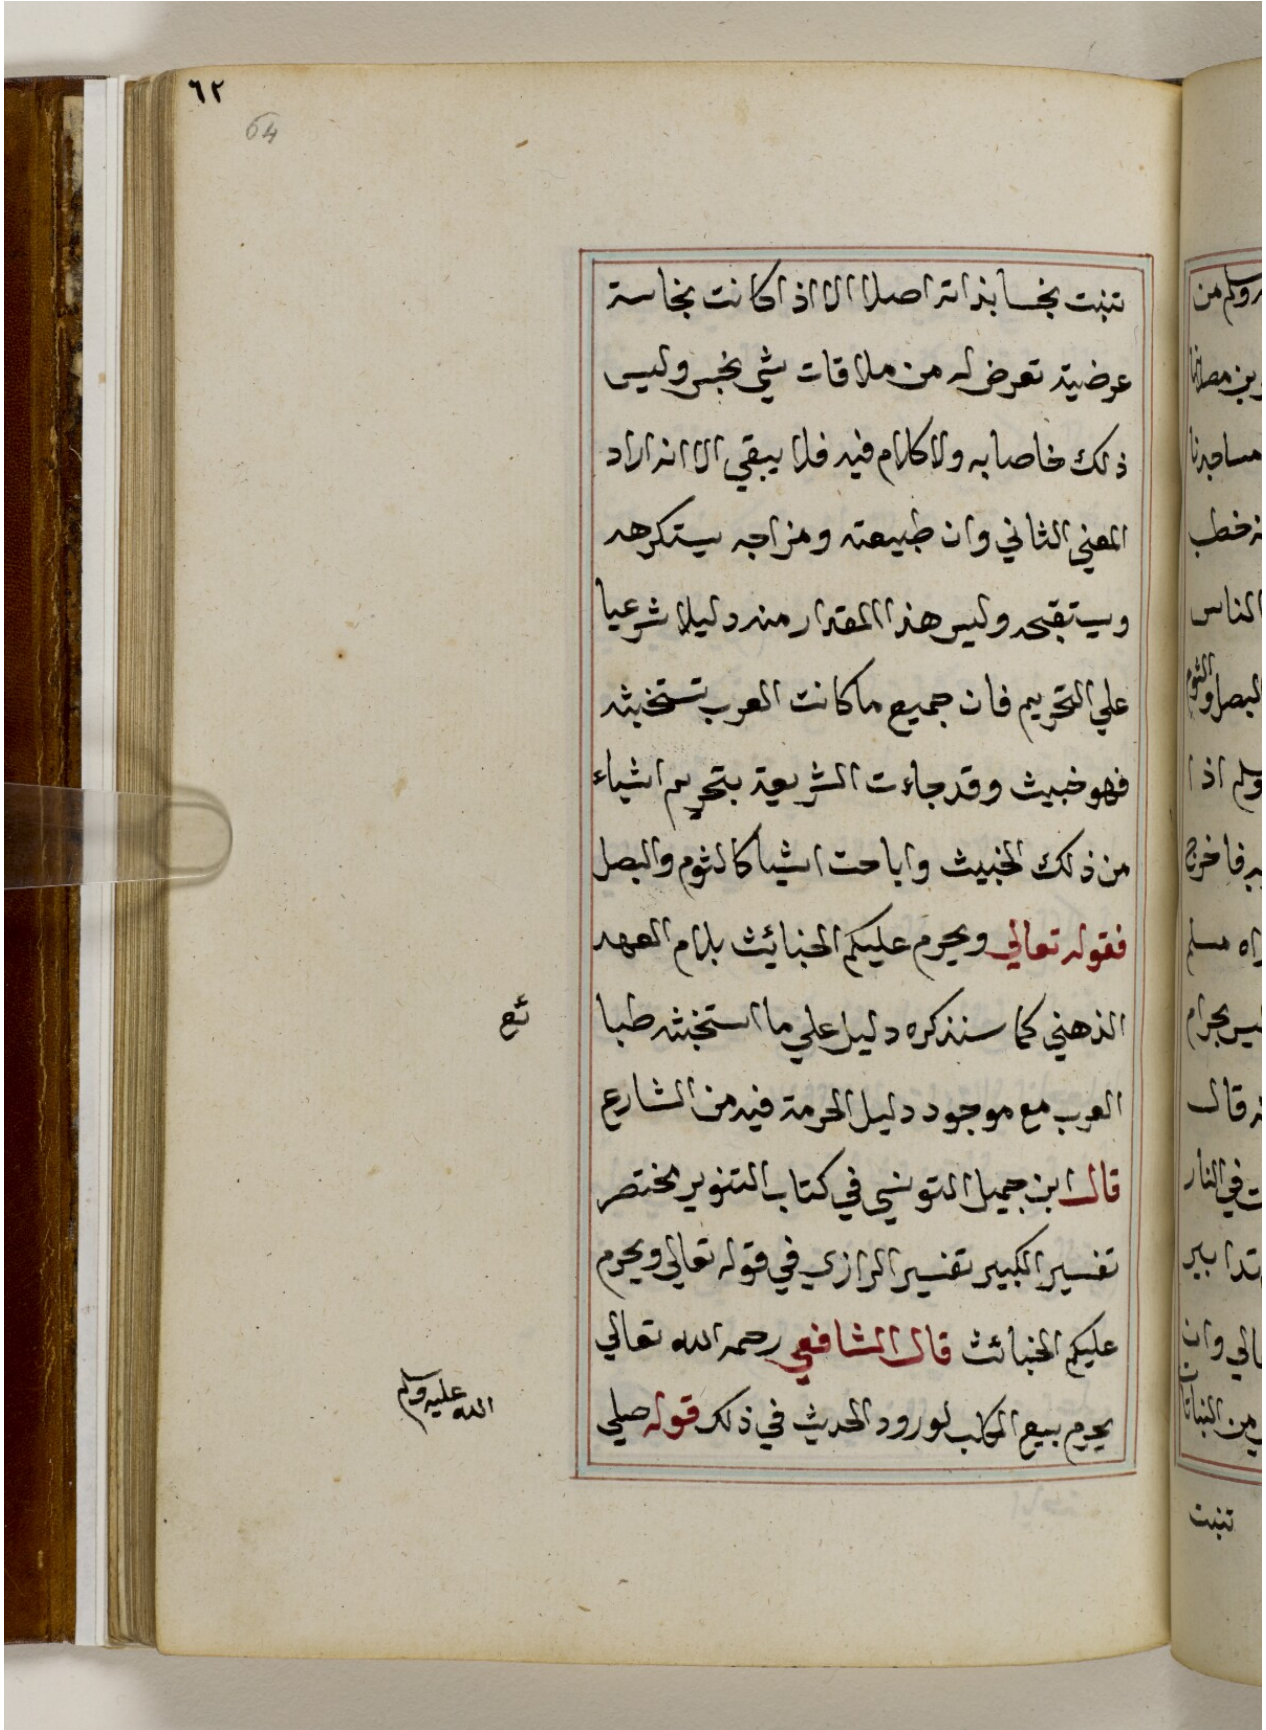 ٦٢
64
تنبت نجسا بذاته اصلا الا اذا كانت نجاسة
عرضية تعرض له من ملاقات شي نجس وليس
ذلك خاصا به ولا كلام فيه فلا يبقي الا انه اراد
المعني الثاني وان طبيعته ومزاجه يستكرهه
ويستقبحه وليس هذا المقدار منه دليلا شرعيا
علي التحريم فان جميع ما كانت العرب تستخبثه
فهو خبيث وقد جاءت الشريعة بتحريم اشياء
من ذلك الخبيث واباحت اشيا كالثوم والبصل
فقوله تعالي ويحرم عليكم الخبائث بلام العهد
الذهني كما سنذكره دليل علي ما استخبثه طبا
ئع
العرب مع موجود دليل الحرمة فيه من الشارع
قال ابن جميل التونسي في كتاب التنوير مختصر
تفسير الكبير تفسير الرازي في قوله تعالي ويحرم
عليكم الخبائث قال الشافعي رحمه الله تعالي
يحرم بيع الكلب لورود الحديث في ذلك قوله صلي
الله عليه وسلم
وسلم من
مساجدنا
خطب
الناس
البصل والثوم
وسلم اذا
فاخرج
رواه مسلم
ليس بحرام
قال
في النار
تدابير
وان
من النباتات
تنبت